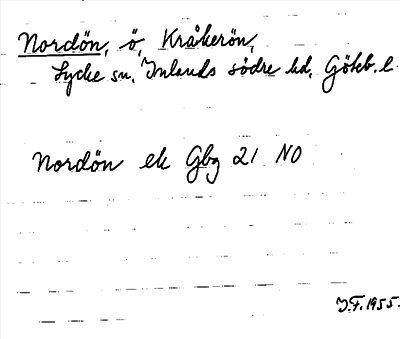 Nordön, ö, Kråkerön,
Lycke sn, Inlands södre hd, Göteb. l
Nordön ek Gbg 21 NO
J.F. 1955.